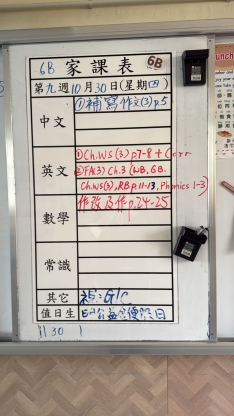 6B 家課表 6B
第九週10月30日(星期四)
中文
①補寫作文(3)p.5
英文
①Ch.WS(3)p.7-8 + Corr
②FA(3) Ch.3 (WB, GB,
Ch.WS(3), RB p.11-13, Phonics 1-3)
數學
作改及作p.24-25
常識
其它
G/C
值日生
便服日
11 30